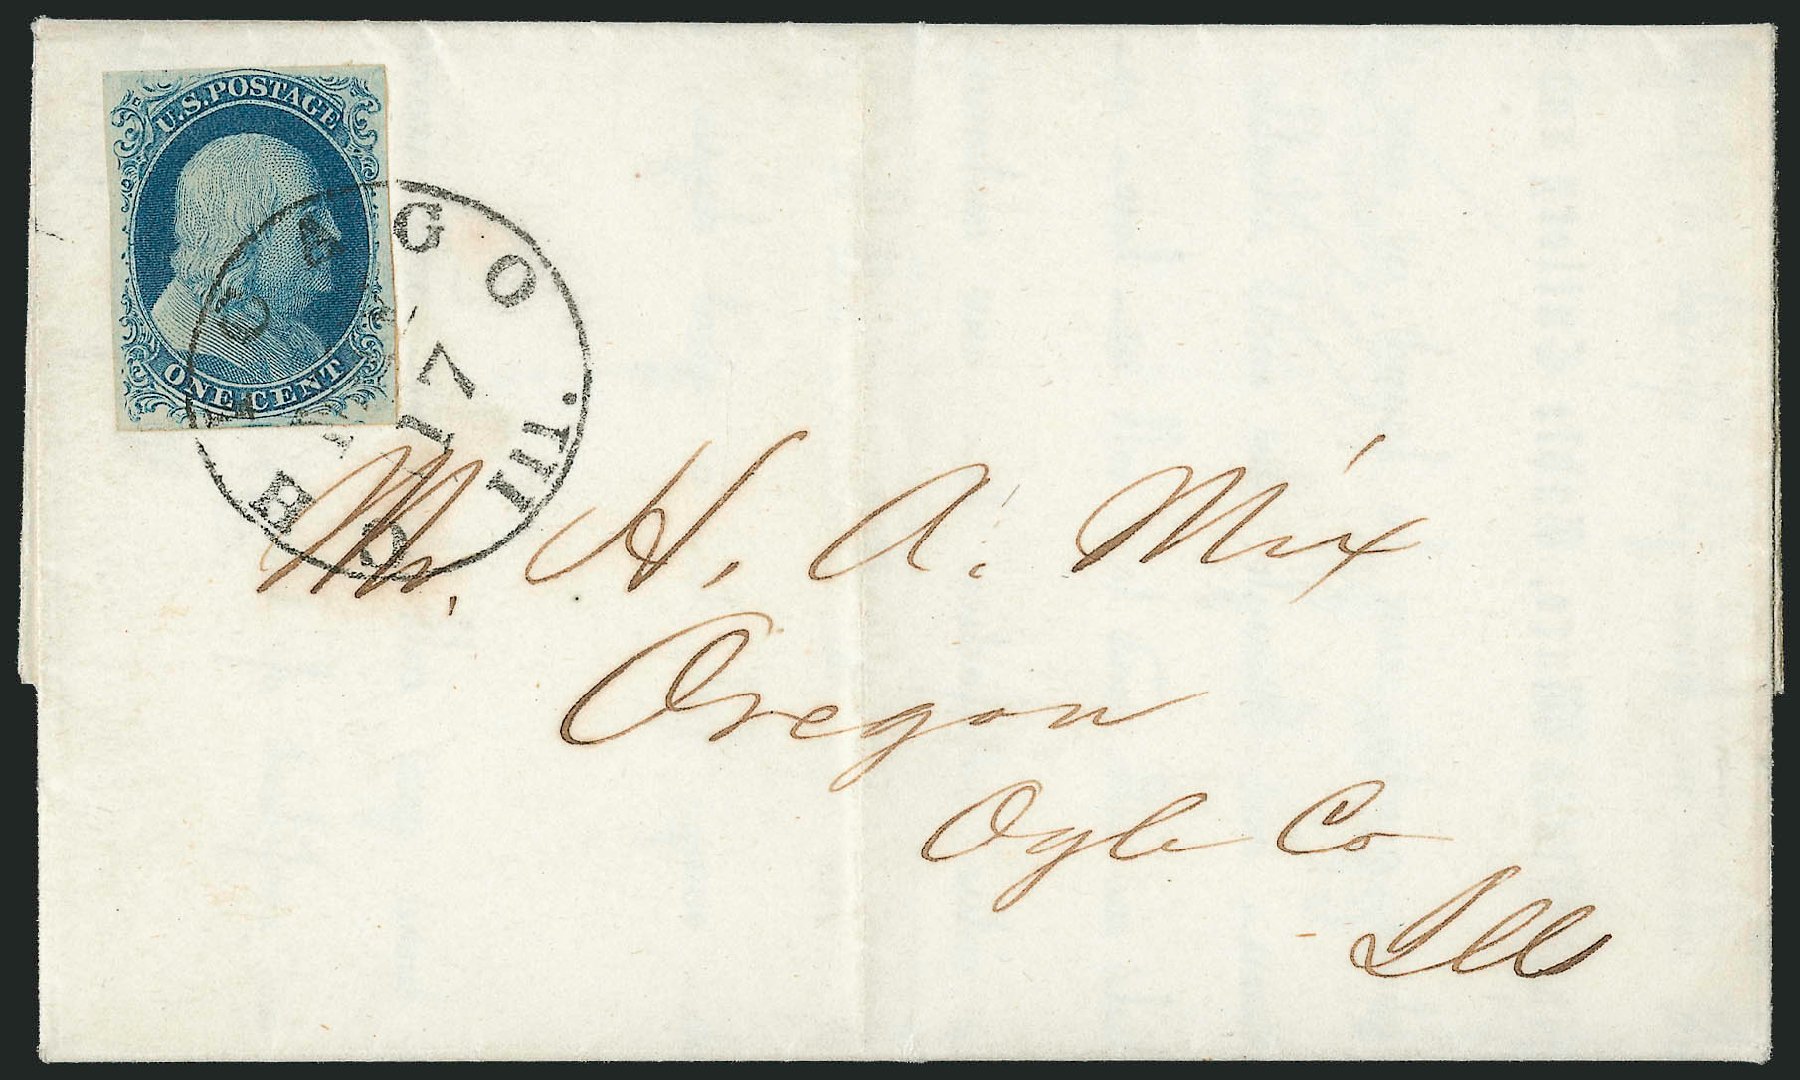 U.S. POSTAGE
ONE CENT
CHICAGO Ill.
17
Mr. H. A. Mix
Oregon
Ogle Co
Ill